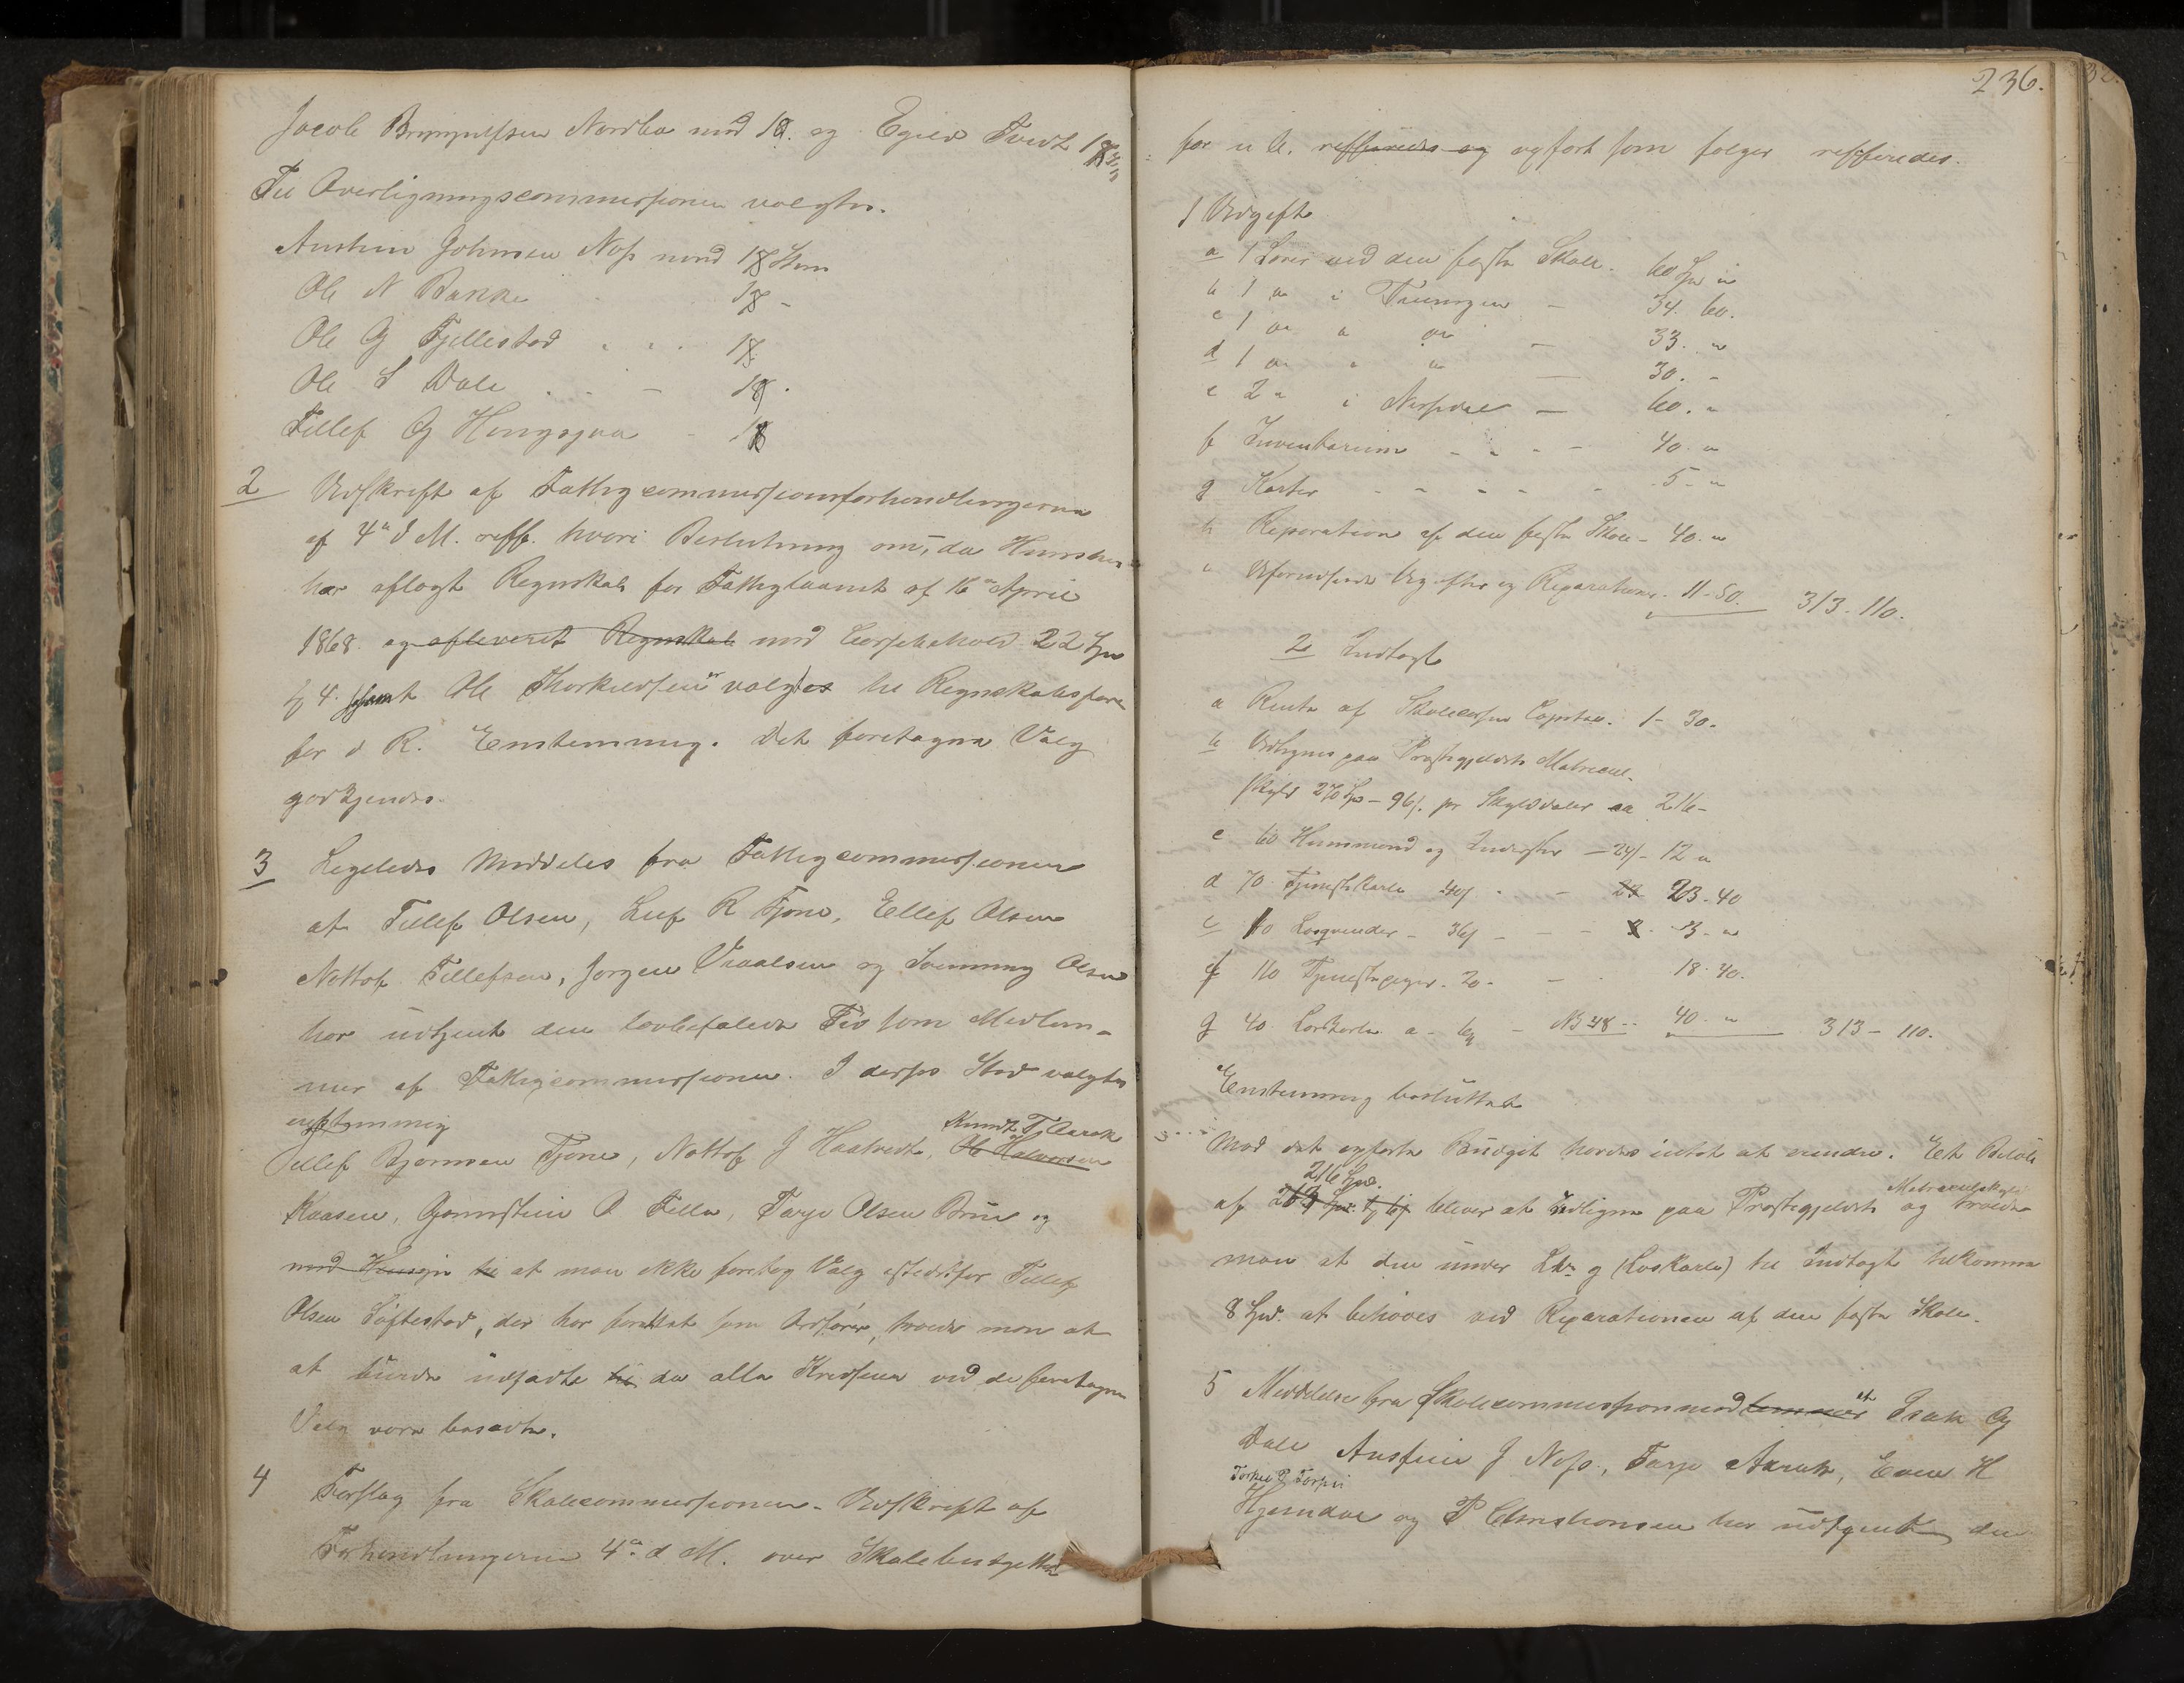 Jacob Brynjulfsen Nordbø med 18. og Egild Tvedt 18
Til Overligningscommissionen valgtes.
Austein Johnsen Næs med 18 Stem
Ole N Bakke 18 -
Ole G Fjellestad - - . 18.
Ole S Dale . - - 18.
Tellef G Hougsgaa - 18
2 Udskrift af Fattigcommissionsforhandlingerne
af 4de d M. reff. hvori Beslutning om, da
har aflagt Regnskab for Fattiglaanet af 16de April
1868. og afleveret Regnskab med Cassebehold 22 Spd
samt Ole Thorkildsen valgtes til Regnskabsfører
for d R. Eenstemmig. Det foretagne Valg
godkjendes.
3 Ligeledes Meddeles fra Fattigcommissionen
at Tellef Olsen, Leif R Fjone, Ellef Olsen
Nottof Tellefsen, Jørgen Vraalsen og Svenning Olsen
har udtjent den lovbefalede Tid som Medlem-
mer af Fattigcommissionen. I derses Sted valgtes
eenstemmig
Tellef Bjørnsen Fjone, Nottof J Haatvedt, Ole Halvorsen
Knudt T Aarak
Kaasen, Gunnstein O Felle, Tarje Olsen Brue og
med Hensyn til at man ikke foretog Valg istedetfor Tellef
Olsen Tøftestad, der har fordelt som Ordfører, troede man at
at burde udsætte til da alle Kredsene ved de foretagne
Valg vare besatte.
4 Forslag fra Skolecommissionen. Udskrift af
Forhandlingerne 4de d M. over Skolebudgettet
236.
for n A. refereredes og opført som følger refferedes.
1 Udgift
a 1 Lærer ved den faste Skole. 60 Spd "
b 1 " i Treungen - 34. 60.
c 1 " " " - 33. "
d 1 " " " - 30. -
e 2 " i Nissedal - 60. "
f Inventarium - - - - 40. "
g Karter - - - - - 5 - "
h Reparation af den faste Skole - 40. "
i Uforudseede Udgifter og Reparationer - 11 - 50. 313 - 110.
2 Indtægt
a Rente af Skolecassens Capital. 1 - 30.
b Udlignes paa Præstegjeldets Matricul-
skyld 270 Spd - 96 s. pr Skylddaler aa 216 -
c 60 Huusmænd og Inderster - 24 s - 12 "
d 70 Tjenestekarle 40 s - - 23 - 40
e 10 Løsqvinder - 36 s - - - 3 - "
f 110 Tjenestepiger. 20 - - 18. 40.
g 40 Løskarle a - - NB 48 - 40. " 313 - 110.
Eenstemmig besluttet
Mod det opførte Budget havdes intet at erindre. Et Beløb
216 Spd.
Matriculskyld
af 213 Spd. bliver at udligne paa Præstegjeldets og troede
man at den under Litr g (Løskarle) til Indtægt tilkomne
8 Spd. at behøves ved Reparationen af den faste Skole.
5 Meddelelse fra Skolecommissionen at Isak G
Dale Austein J Næs, Tarje Aarak, Even H
Torkel P Torpei
Hjemdal og P Christiansen har udtjent den